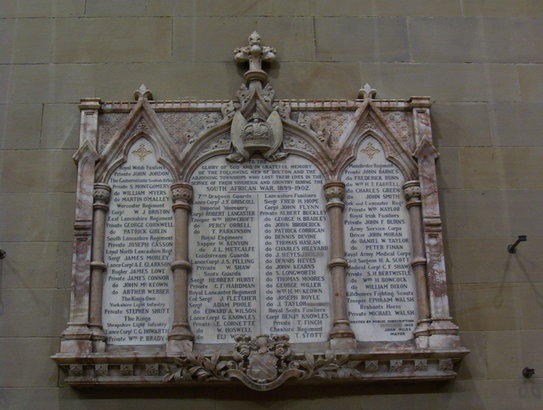 GLORY OF GOD AND IN GRATEFUL MEMORY
OF THE FOLLOWING MEN OF BOLTON AND THE
ADJOINING TOWNSHIPS WHO LOST THEIR LIVES IN THE
SERVICE OF THEIR SOVEREIGN AND COUNTRY DURING THE
SOUTH AFRICAN WAR. 1899-1902.
Royal Welsh Fusiliers
Private JOHN JORDON
Private S. MONTGOMERY
do WILLIAM MYERS
do MARTIN O'NEILL
Worcester Regiment
Corpl W. J. BRISTON
East Lancashire Regiment
Private GEORGE CORNWELL
do PATRICK QUILIN
South Lancashire Regiment
Private JOSEPH CASSON
Loyal North Lancashire Regt
Sergt JAMES MORLEY
Lance Corpl A. E. CLARKSON
Bugler JAMES LOWE
Private JAMES CONNOR
do JOHN McKAY
do ARTHUR WEBBER
The Kings Own
Yorkshire Light Infantry
Private STEPHEN SHUTT
The Kings
Shropshire Light Infantry
Lance Corpl C. G. HOWARTH
Private WM P. BRADY
7th Dragoon Guards
Lance Corpl J. F. DRISCOLL
Imperial Yeomanry
Corpl R. KNOWLES
Lance Corpl ROBERT LANCASTER
Trooper WM HOWCROFT
do PERCY ORRELL
do T. PARKINSON
Royal Engineers
Sapper W. KENYON
do J. E. METCALFE
Coldstream Guards
Lance Corpl J. S. PELLING
Private W. SHAW
Scots Guards
Sergt HERBERT HURST
Private C. F. HARDMAN
Royal Lancaster Regiment
Col Sergt J. FLETCHER
Sergt ADAM POOLE
do EDWARD A. WILSON
Lance Corpl G. KNOWLES
Private E. CORNETT
do W. BOSWELL
Lancashire Fusiliers
Sergt FRED H. HOPE
Corpl JOHN FLYNN
Private ALBERT BUCKLEY
do GEORGE H. BRAIN
do JOHN BRODERICK
do PATRICK CORRIGAN
do DENNIS DEVINE
do THOMAS HASLAM
do CHARLES HILLYARD
do DENNIS HEYES
do JOHN KEARNS
do S. LONGWORTH
do THOMAS MOORES
do GEORGE MILLER
do WM H. McKEOWN
do JOSEPH ROYLE
do J. TAYLOR
Royal Scots Fusiliers
Corpl BENJN KNOWLES
Private T. FINCH
Cheshire Regiment
T. STOTT
Manchester Regiment
Private JOHN BARNES
do FREDERICK BURNS
do WM H. T. FARRELL
do CHARLES GREEN
do JOHN SMITH
Private WM NAYLOR
Royal Irish Fusiliers
Private JOHN F. BURNS
Army Service Corps
Driver JOHN MORAN
do DANIEL W. TAYLOR
do PETER FINAN
Royal Army Medical Corps
Private S. H. BERTWISTLE
do WM H. HOWCOCK
do WILLIAM DIXON
Kitcheners Fighting Scouts
Trooper EPHRAIM WALSH
Private MICHAEL WALSH
ERECTED BY PUBLIC SUBSCRIPTION
JOHN MILES
MAYOR